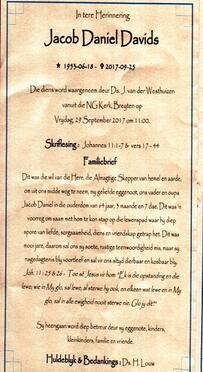 In tere Herinnering
Jacob Daniel Davids
★ 1953-06-18 - ✞ 2017-09-25
Die diens word waargeneem deur Ds. J. van der Westhuizen
vanuit die NG Kerk, Breyten op
Vrydag, 29 September 2017 om 11:00.
Skriflesing : Johannes 11:1-7 & vers 17 - 44
Familiebrief
Dit was die wil van die Here, die Almagtige Skepper van hemel en aarde,
om uit ons midde weg te neem, ny geliefde eggenoot, ons vader en oupa
Jacob Daniel in die ouderdom van 64 jaar, 3 maande en 7 dae. Dit was 'n
voorreg om saam met hom te kon stap op die lewenspad waar hy diep
spore van liefde, sorgsaamheid, diens en vriendskap getrap het. Dit was
mooi jare, daarom sal ons sy soete, rustige teenwoordigheid mis, maar sy
nagedagtenis bly voortleef en sal vir ons altyd dierbaar en kosbaar bly.
Joh. 11 : 25 & 26 - Toe sê Jesus vir hom "Ek is die opstanding en die
lewe; wie in My glo, sal lewe, al sterwe hy ook, en elkeen wat lewe en in My
glo, sal in alle ewigheid nooit sterwe nie. Glo jy dit?"
Sy heengaan word diep betreur deur sy eggenote, kinders,
kleinkinders, familie en vriende.
Huldeblyk & Bedankings : Ds. H. Louw